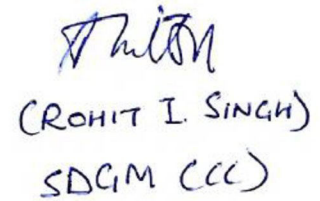 (ROHIT I. SINGH)
SDGM (CCC)